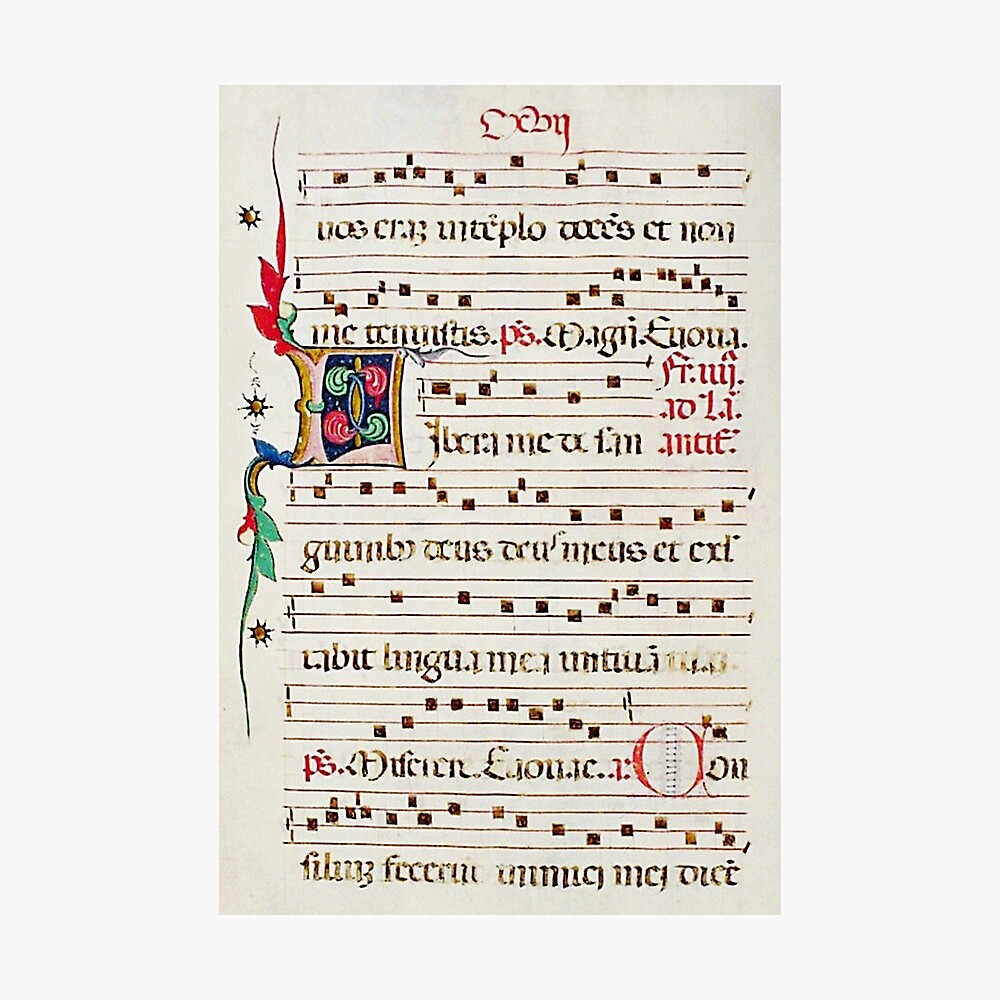 CXVIJ
uos eraꝫ in tēplo docēs et non
me tenuistis. p̄s. Magn̄. Euoua.
Fr. iiij.
ad La.
Libera me de san antif̄.
guinibꝰ deus deus meus et exl
tabit lingua mea iustitiā tuā.
p̄s. Miserere. Euouae. a. Con
siliuꝫ fecerūt inimici mei dicēt